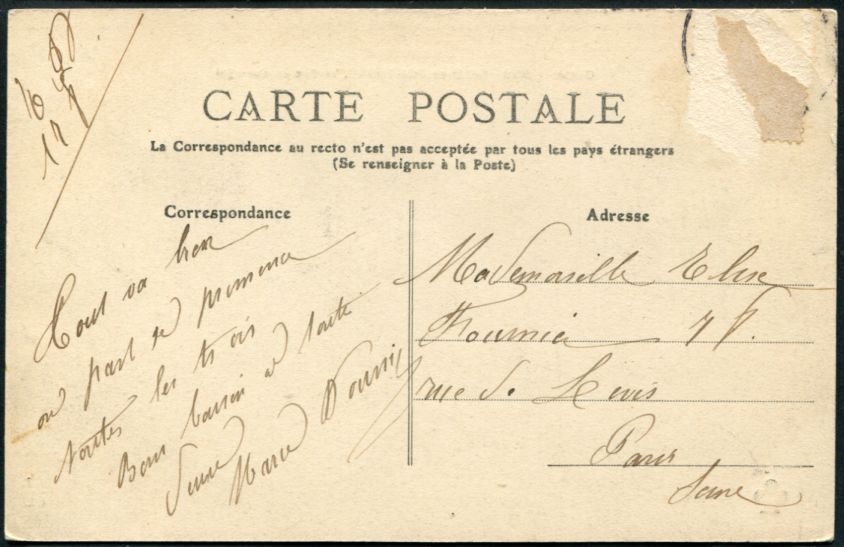 CARTE POSTALE
La Correspondance au recto n'est pas acceptée par tous les pays étrangers
(Se renseigner à la Poste)
Correspondance
Tout va bien
on part se promener
toutes les trois
Bons baisers a toute
Marie
Adresse
Mademoiselle Elise
Fournier
rue de Levis
Paris
Seine